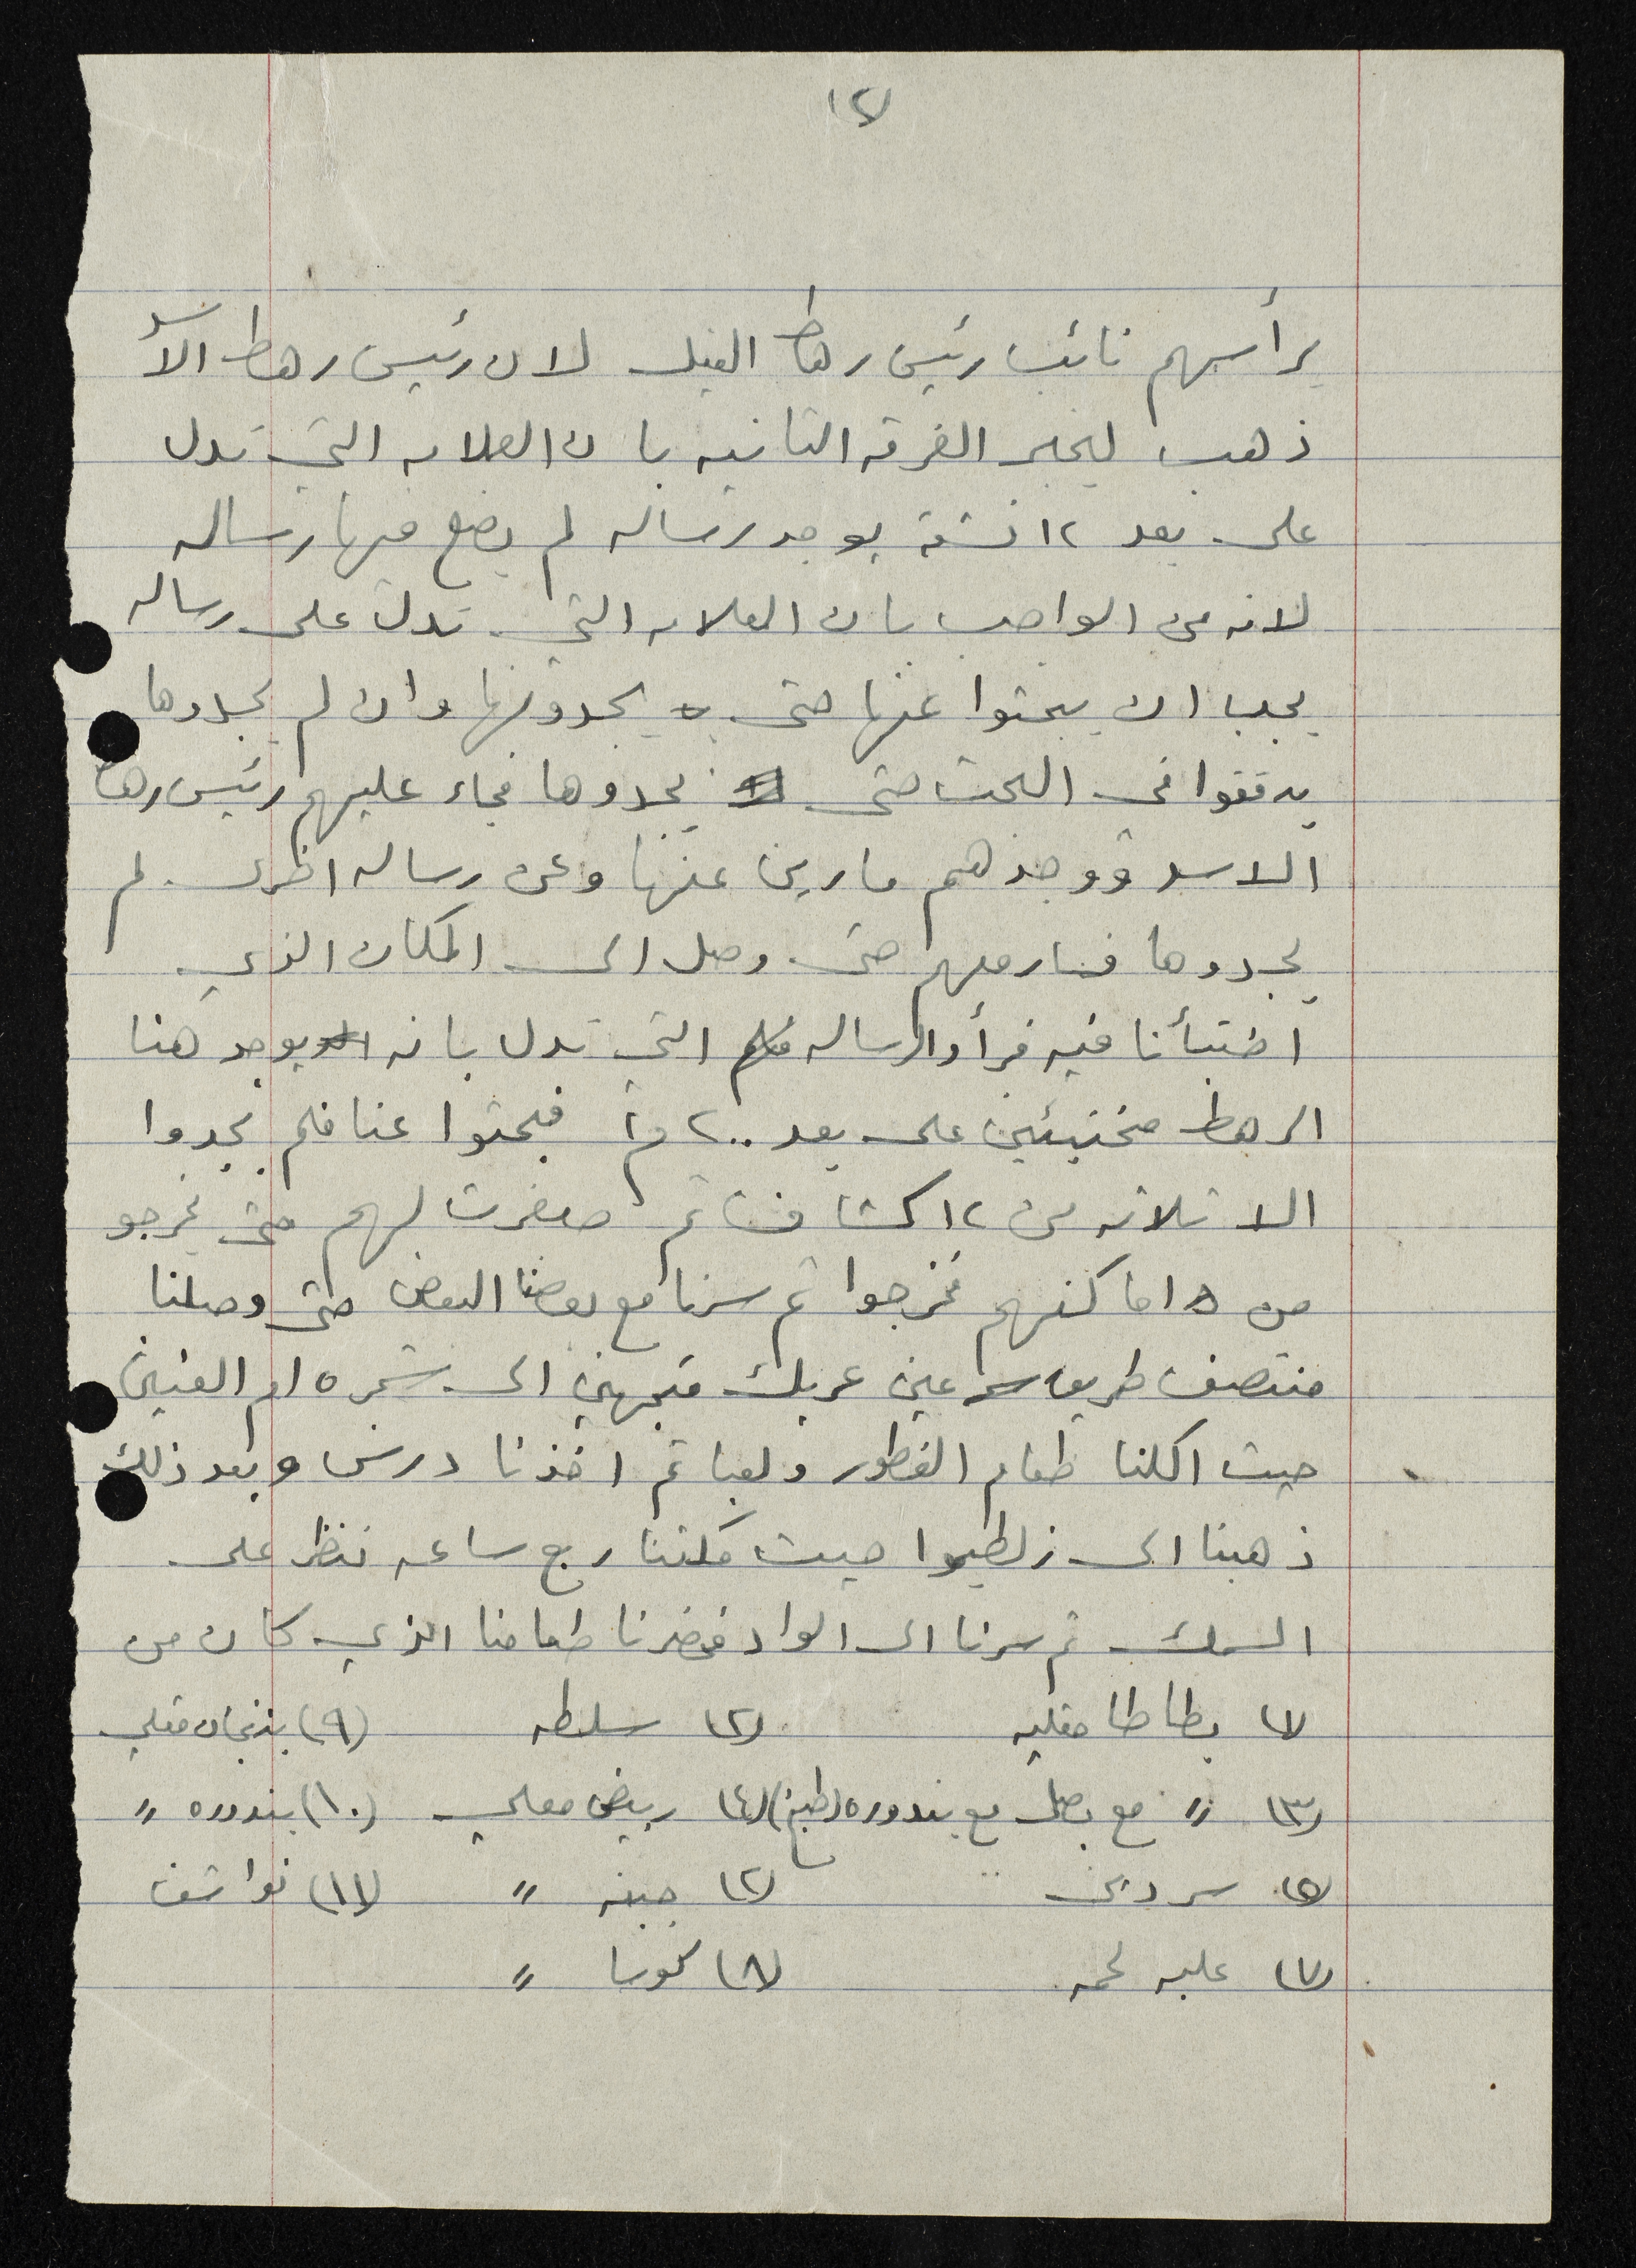 ١٢
يرأسهم نائب رئيس رهط الفيل لان رئيس رهط الاسد
ذهب ليخبر الفرقه الثانيه بان العلامه التي تدل
على بعد ١٢ يوجد رساله لم يضع فيها رساله
لانه من الواجب بان العلامه التي تدل على رساله
يجب ان يبحثوا عنها حتى يجدونها وان لم يجدوها
يدققوا في البحث حتى يجدوها فجاء عليهم رئيس رهط
الاسد ووجدهم مارين عنها وعن رساله اخرى لم
يجدوها فسار معهم حتى وصل الى المكان الذي
اختبأنا فيه فرأوا الرساله التي تدل بانه يوجد هنا
الرهط مختبئين على بعد ٢٠٠ م فبحثوا عنا فلم يجدوا
الا ثلاثه من ١٢ كشافنا ثم صفرت لهم حتى يخرجو
من اماكنهم فخرجوا ثم سرنا مع بعضنا البعض حتى وصلنا
منتصف طريق عين عريك متجهين الى شجره ام العنين
حيث اكلنا طعام الفطور ولعبنا ثم اخذنا درس وبعد ذلك
ذهبنا الى زلطيموا حيث مكثنا ربع ساعه ننظر على
السمك ثم سرنا الى الواد فحضرنا طعامنا الذي كان من
(١) بطاطا مقليه (٢) سلطه (٩) بذنجان مقلي
(٣) " مع بصل مع بندوره (طبخ) (٤) بيض مقلي (١٠) بندوره "
(٥) سردين (٦) جبنه " (١١) نواشف
(٧) علبه لحمه (٨) كوسا "